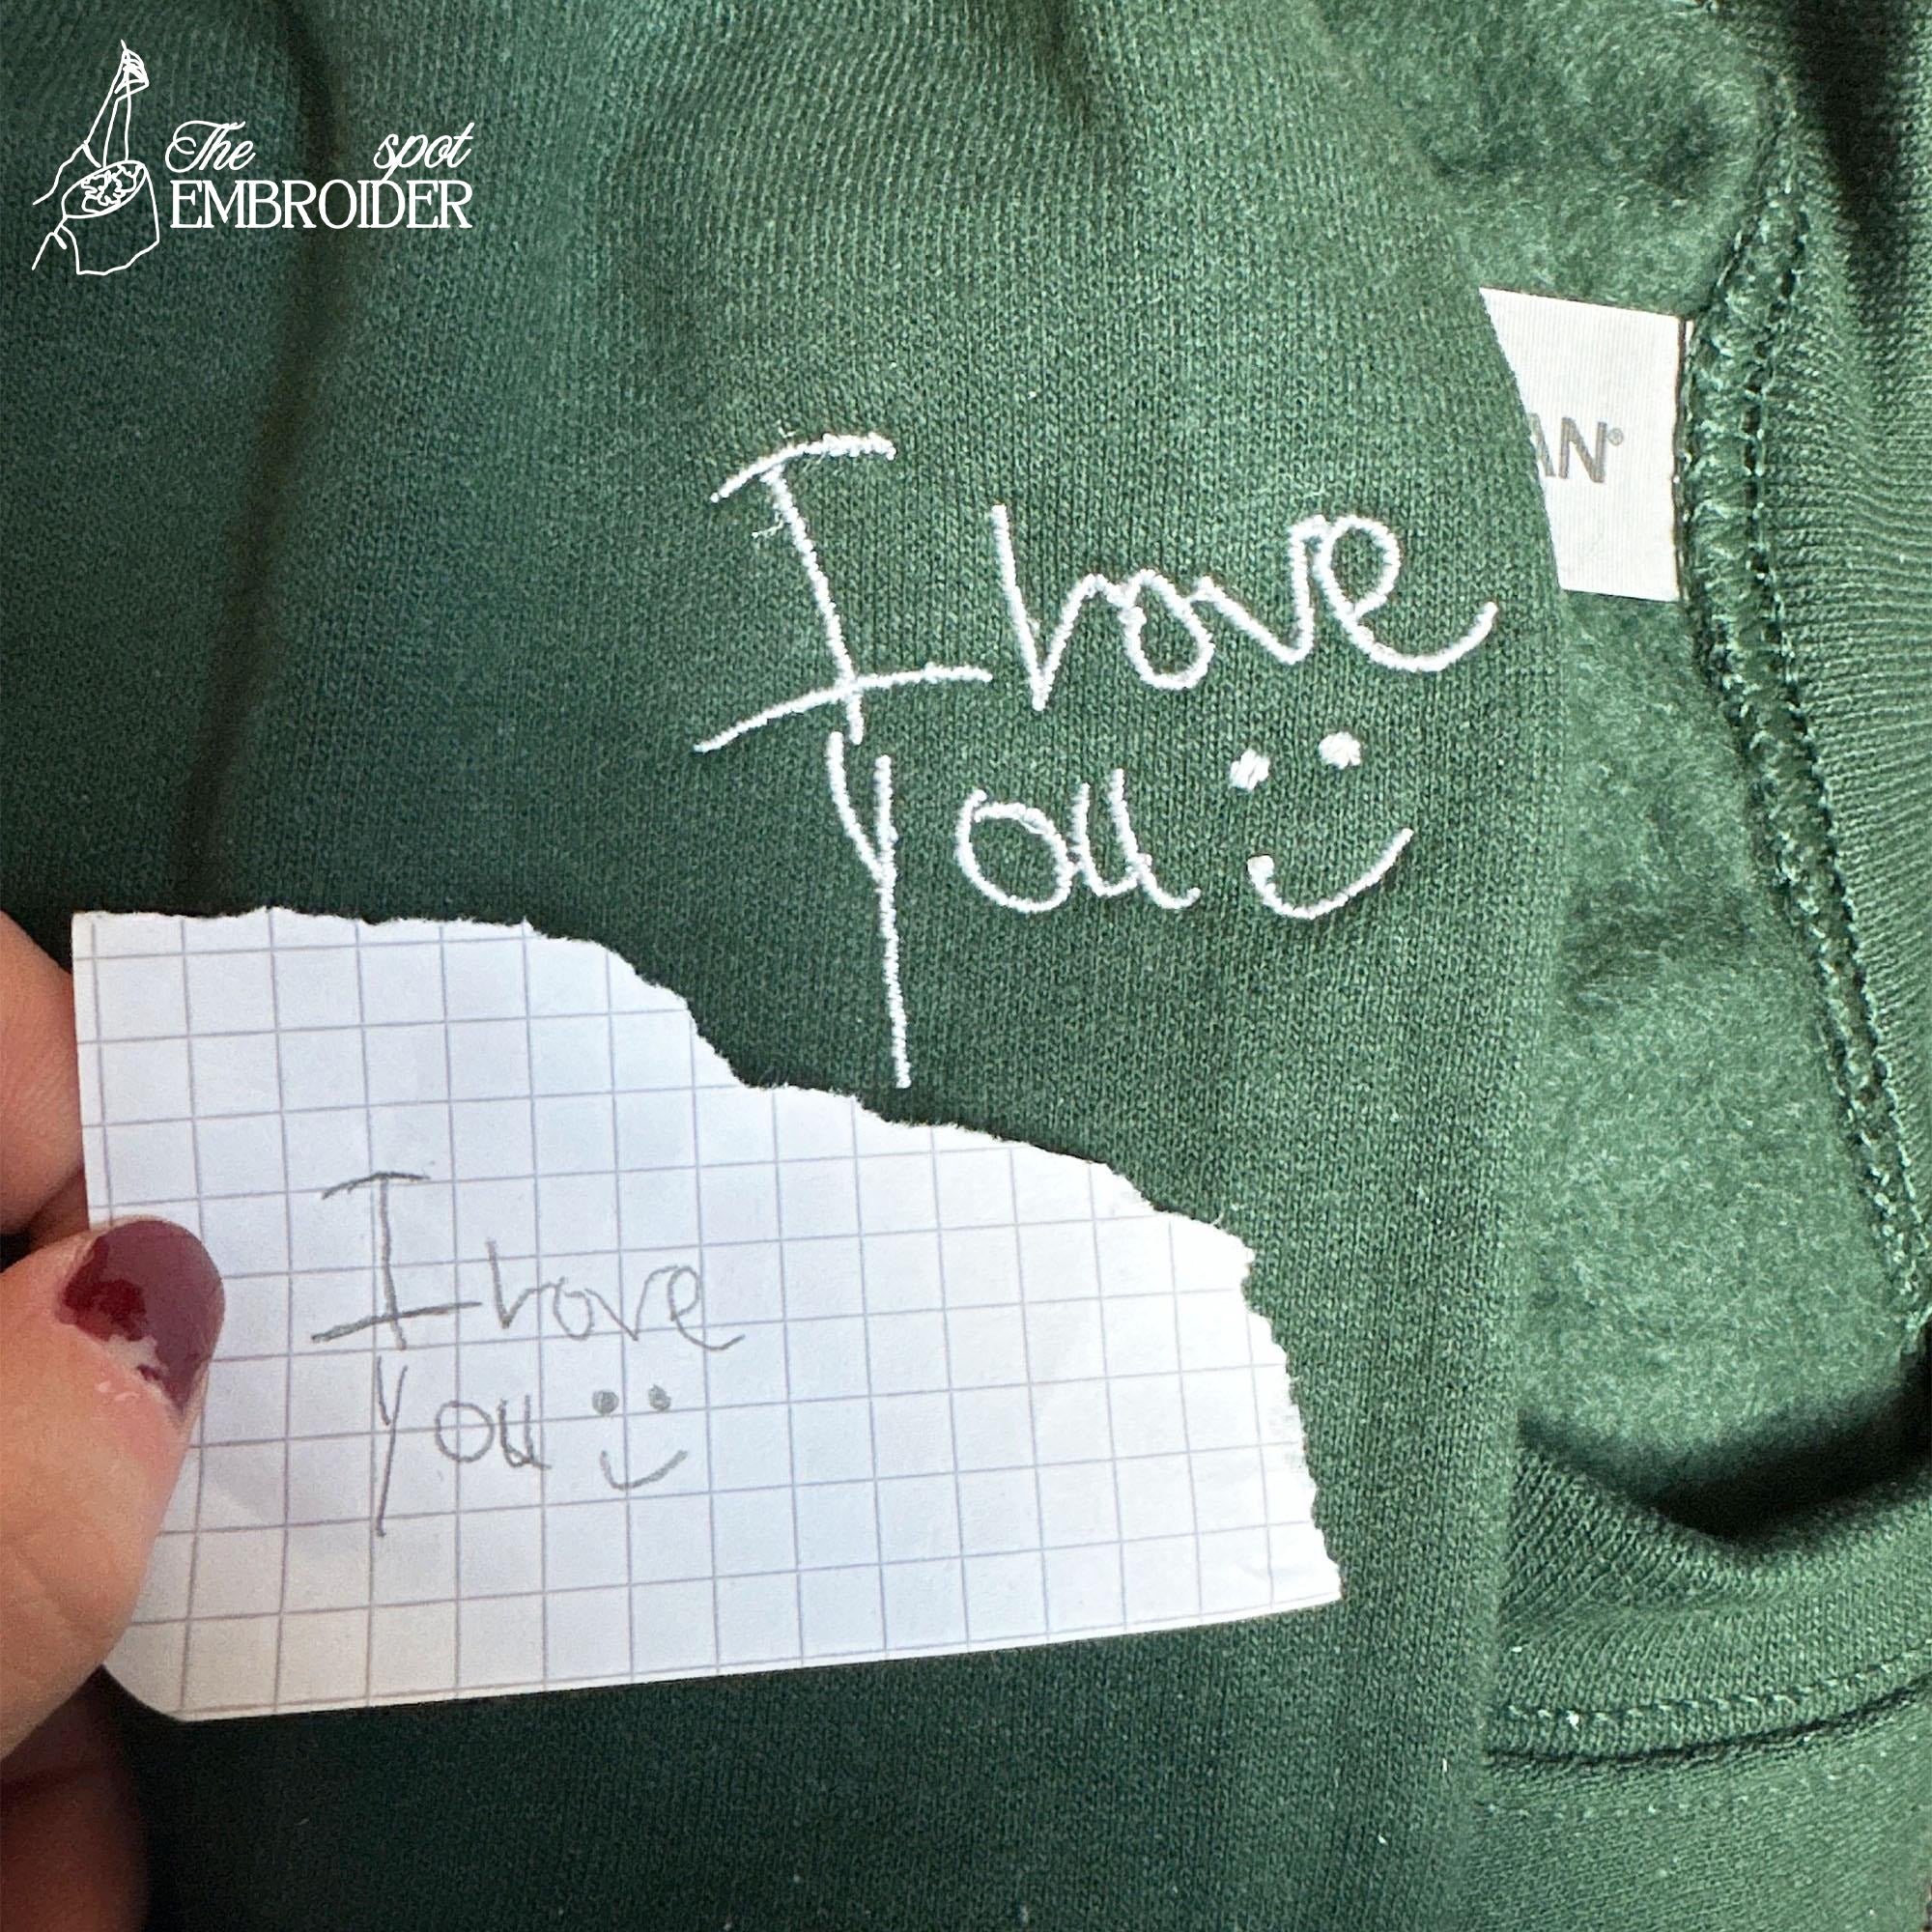 The spot
EMBROIDER
AN®
I love
You
I love
You